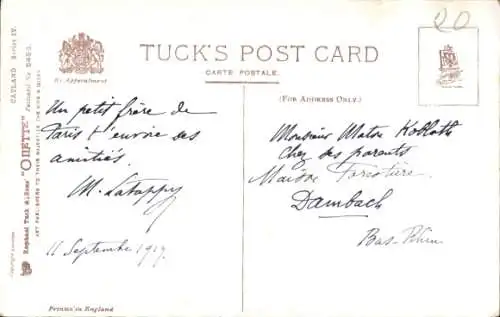 20
TUCK'S POST CARD
CARTE POSTALE.
By Appointment
(FOR ADDRESS ONLY.)
CATLAND Series IV.
Raphael Tuck & Sons' "OILETTE" Postcard No 9493.
ART PUBLISHERS TO THEIR MAJESTIES THE KING & QUEEN
Un petit frère de
Paris t'envoie ses
amitiés.
M. Latappy
11 Septembre 1919.
Monsieur
Chez ses parents
Maison Forestière
Dambach
Bas-Rhin
Printed in England